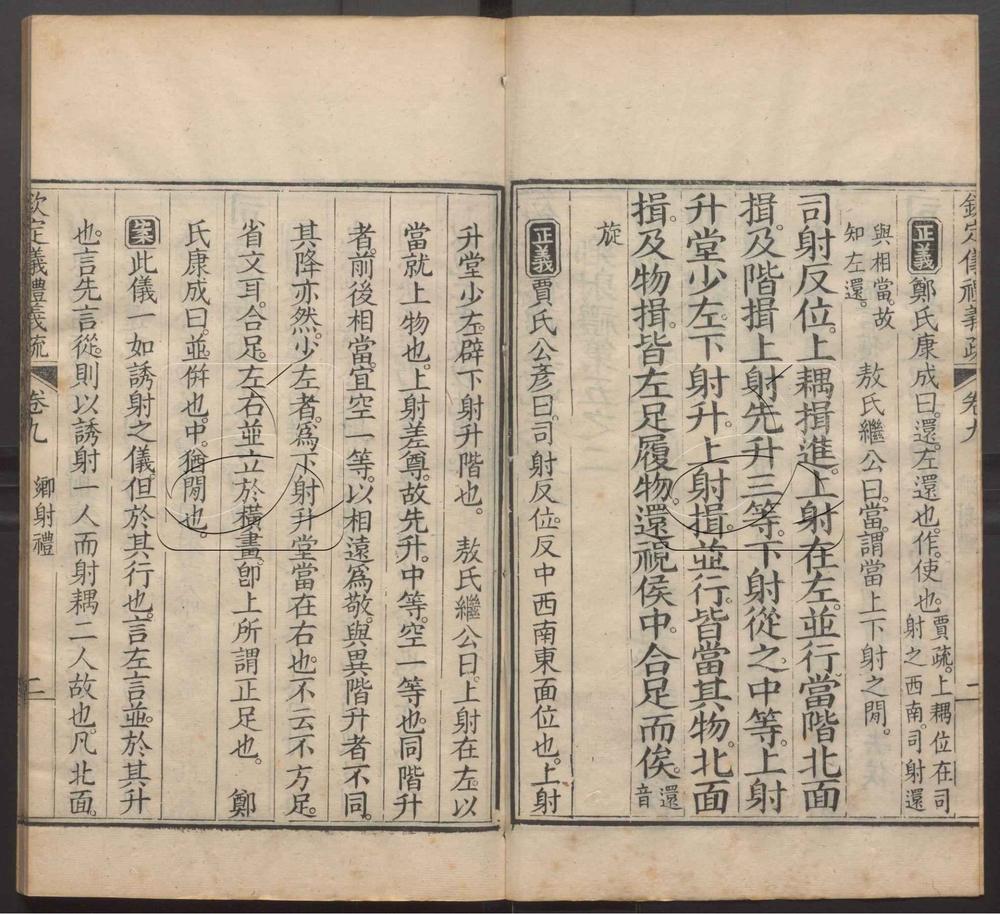 欽定儀禮義疏 卷九 二
正義 鄭氏康成曰。還。左還也。作。使也。賈疏。上耦位在司射之西南。司射還
與相當。故知左還。 敖氏繼公曰。當。謂當上下射之閒。
司射反位。上耦揖進。上射在左。並行。當階北面
揖。及階揖。上射先升三等。下射從之。中等。上射
升堂少左。下射升。上射揖。並行。皆當其物。北面
揖。及物揖。皆左足履物。還視侯中。合足而俟。還音
旋
正義 賈氏公彥曰。司射反位。反中西南東面位也。上射
升堂少左。辟下射升階也。 敖氏繼公曰。上射在左。以
當就上物也。上射差尊。故先升。中等。空一等也。同階升
者。前後相當。宜空一等。以相遠爲敬。與異階升者不同。
其降亦然。少左者。爲下射升堂當在右也。不云不方足。
省文耳。合足。左右並立於橫畫。卽上所謂正足也。 鄭
氏康成曰。並。併也。中。猶閒也。
案 此儀一如誘射之儀。但於其行也。言左言並。於其升
也。言先言從。則以誘射一人而射耦二人故也。凡北面。
欽定儀禮義疏 卷九 鄉射禮 二